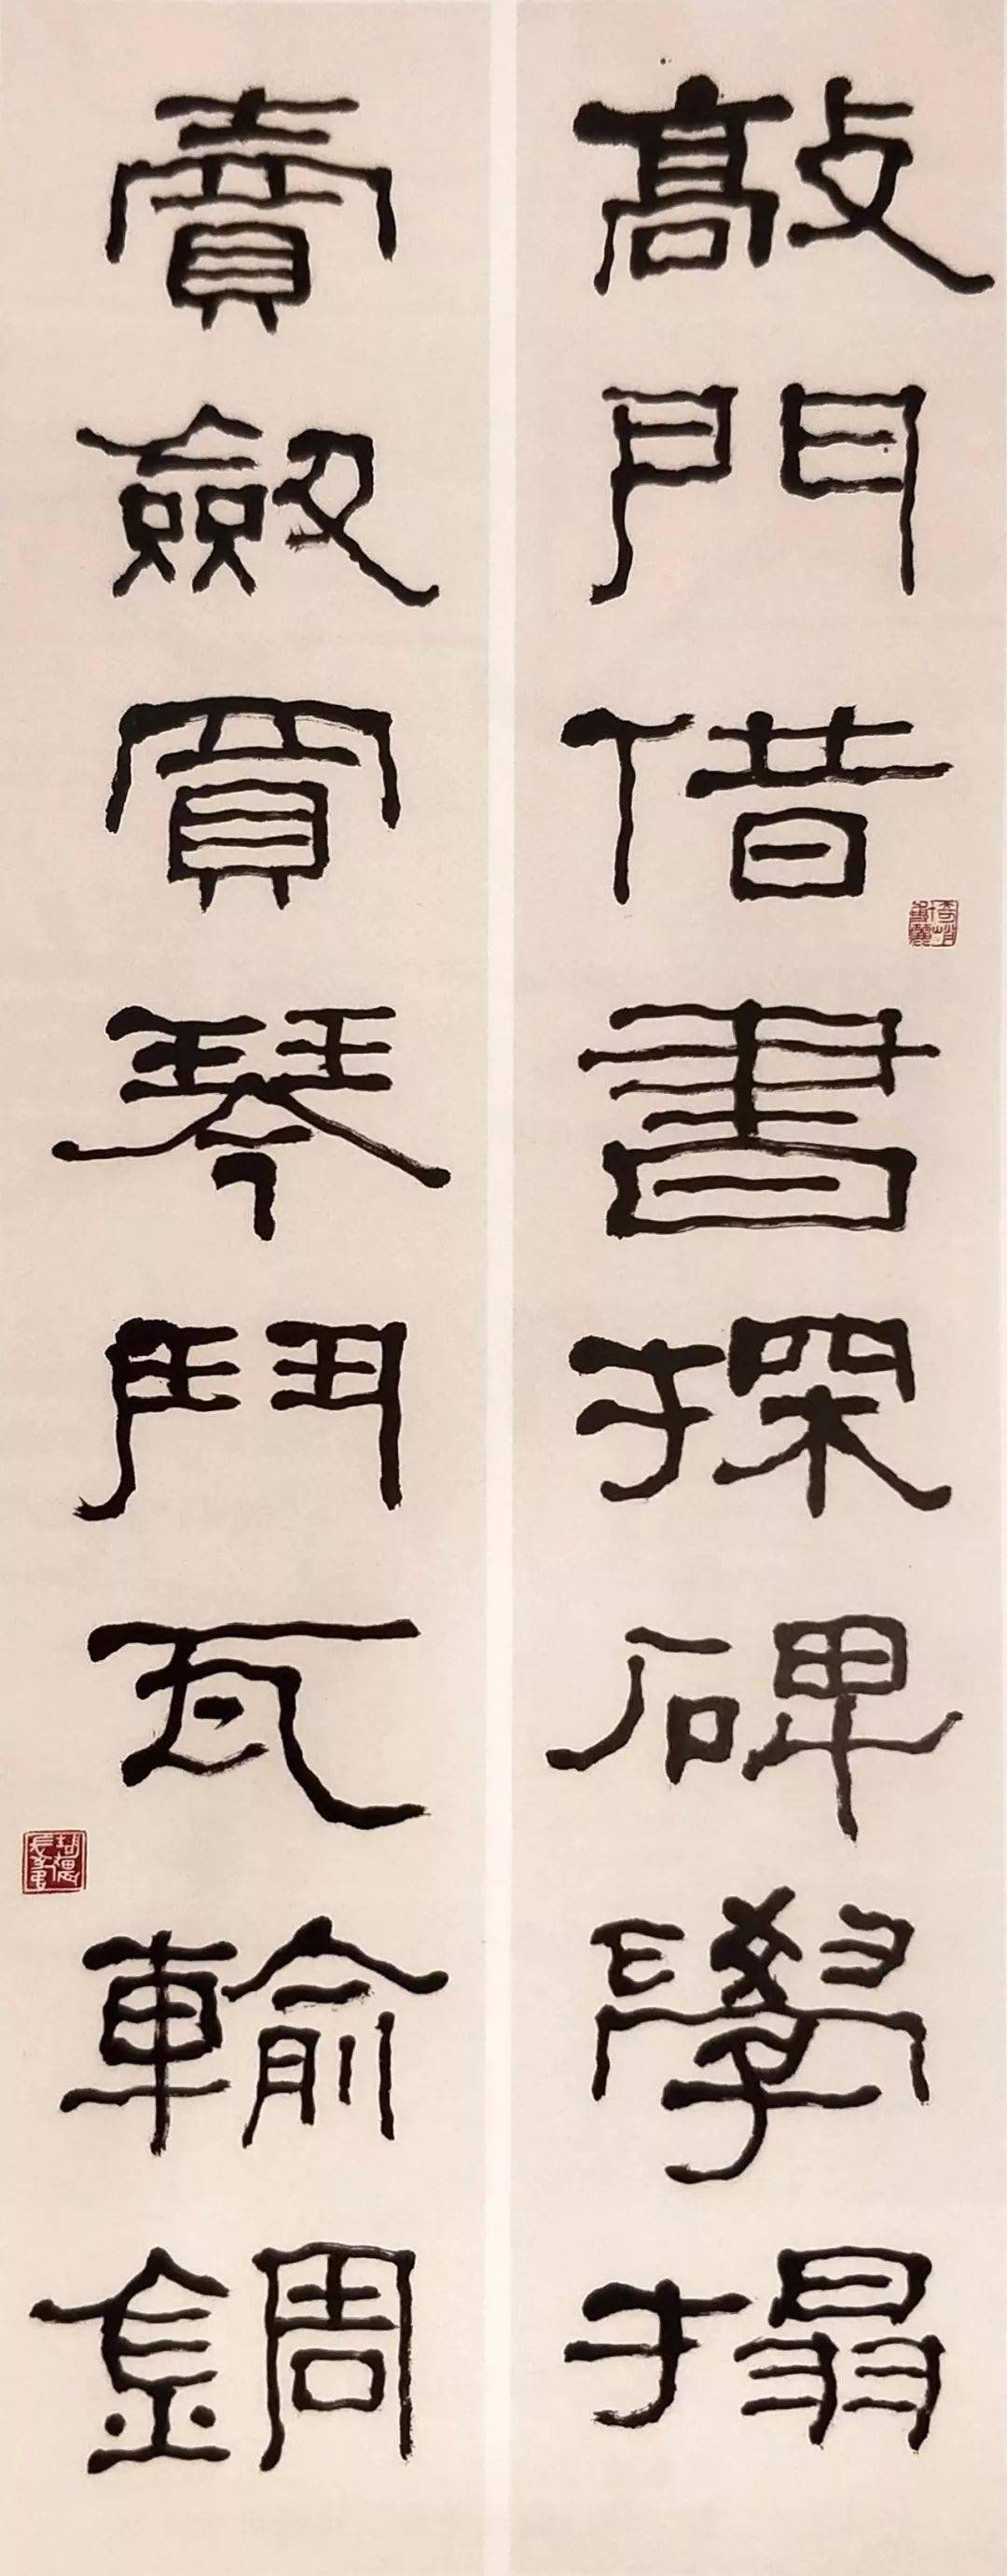 敲門借書探碑學搨
賣劔買琴鬥瓦輸鋼